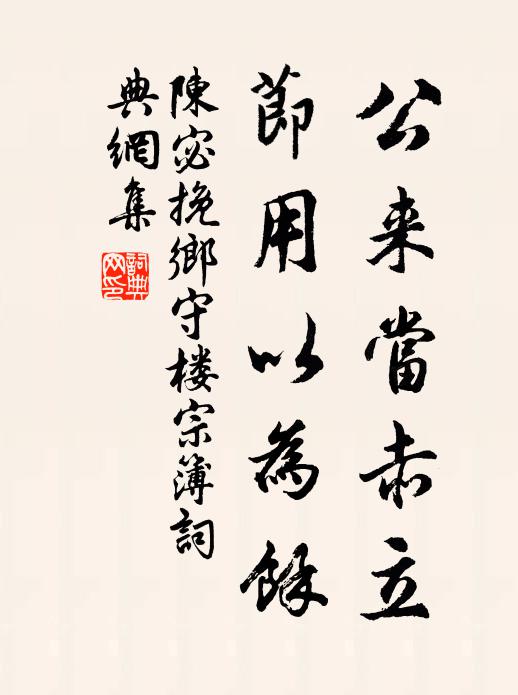 公来當赤立
莭用以為餘
陳宓挽鄉守楼宗簿詞
典網集
詞典网印